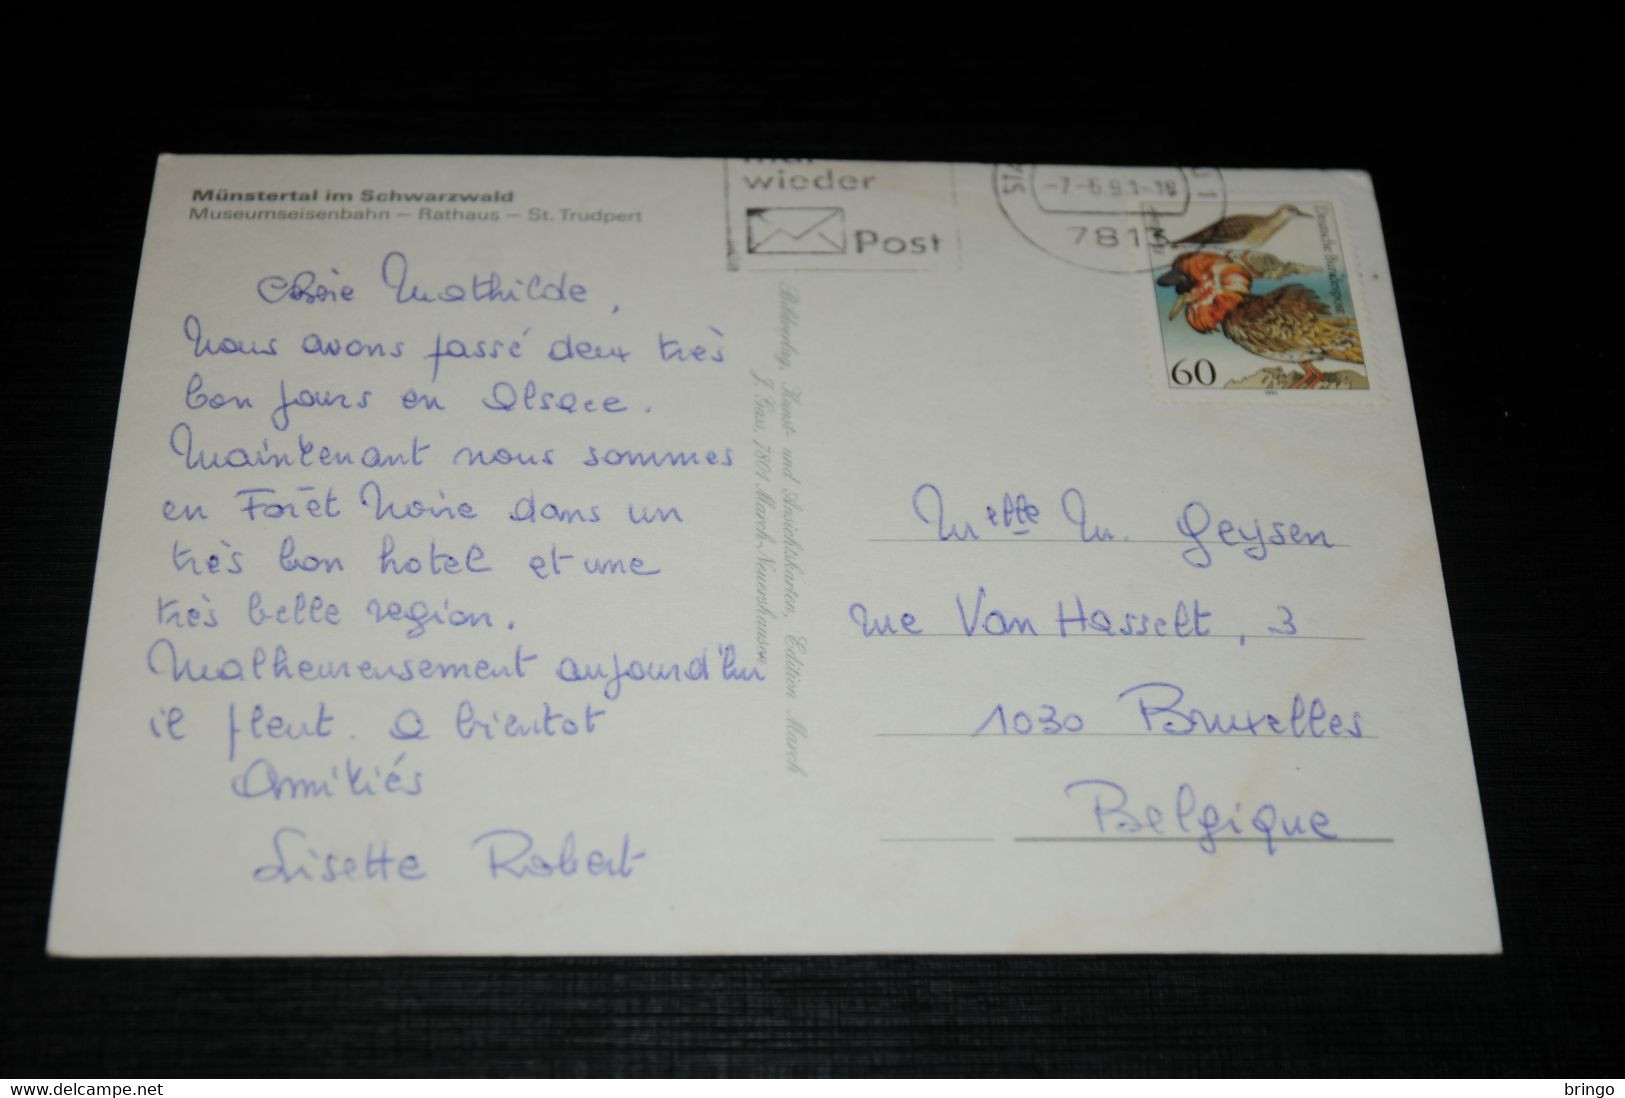 Münstertal im Schwarzwald
Museumseisenbahn – Rathaus – St. Trudpert
wieder
Post
-7.-6.91-18
7813
Deutsche Bundespost
60
1991
Chère Mathilde,
Nous avons passé deux très
bon jours en Alsace.
Maintenant nous sommes
en Forêt Noire dans un
très bon hotel et une
très belle region.
Malheureusement aujourd'hui
il pleut. A bientot
Amitiés
Lisette Robert
Bildverlag, Kunst- und Ansichtskarten, Edition March
J. Gass, 7801 March-Neuershausen
Melle M. Geysen
rue Van Hasselt, 3
1030 Bruxelles
Belgique
bringo